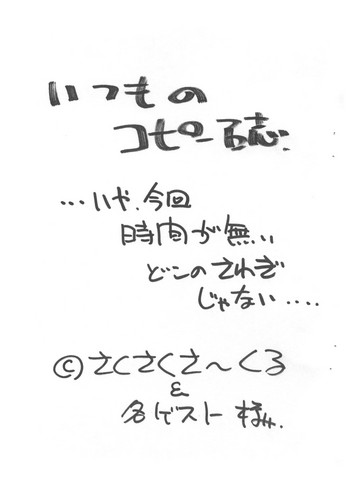 いつもの
コピー誌.
…いや、今回
時間が無い
どこのさわぎ
じゃない....
©さくさくさ～くる
&
各ゲスト様.